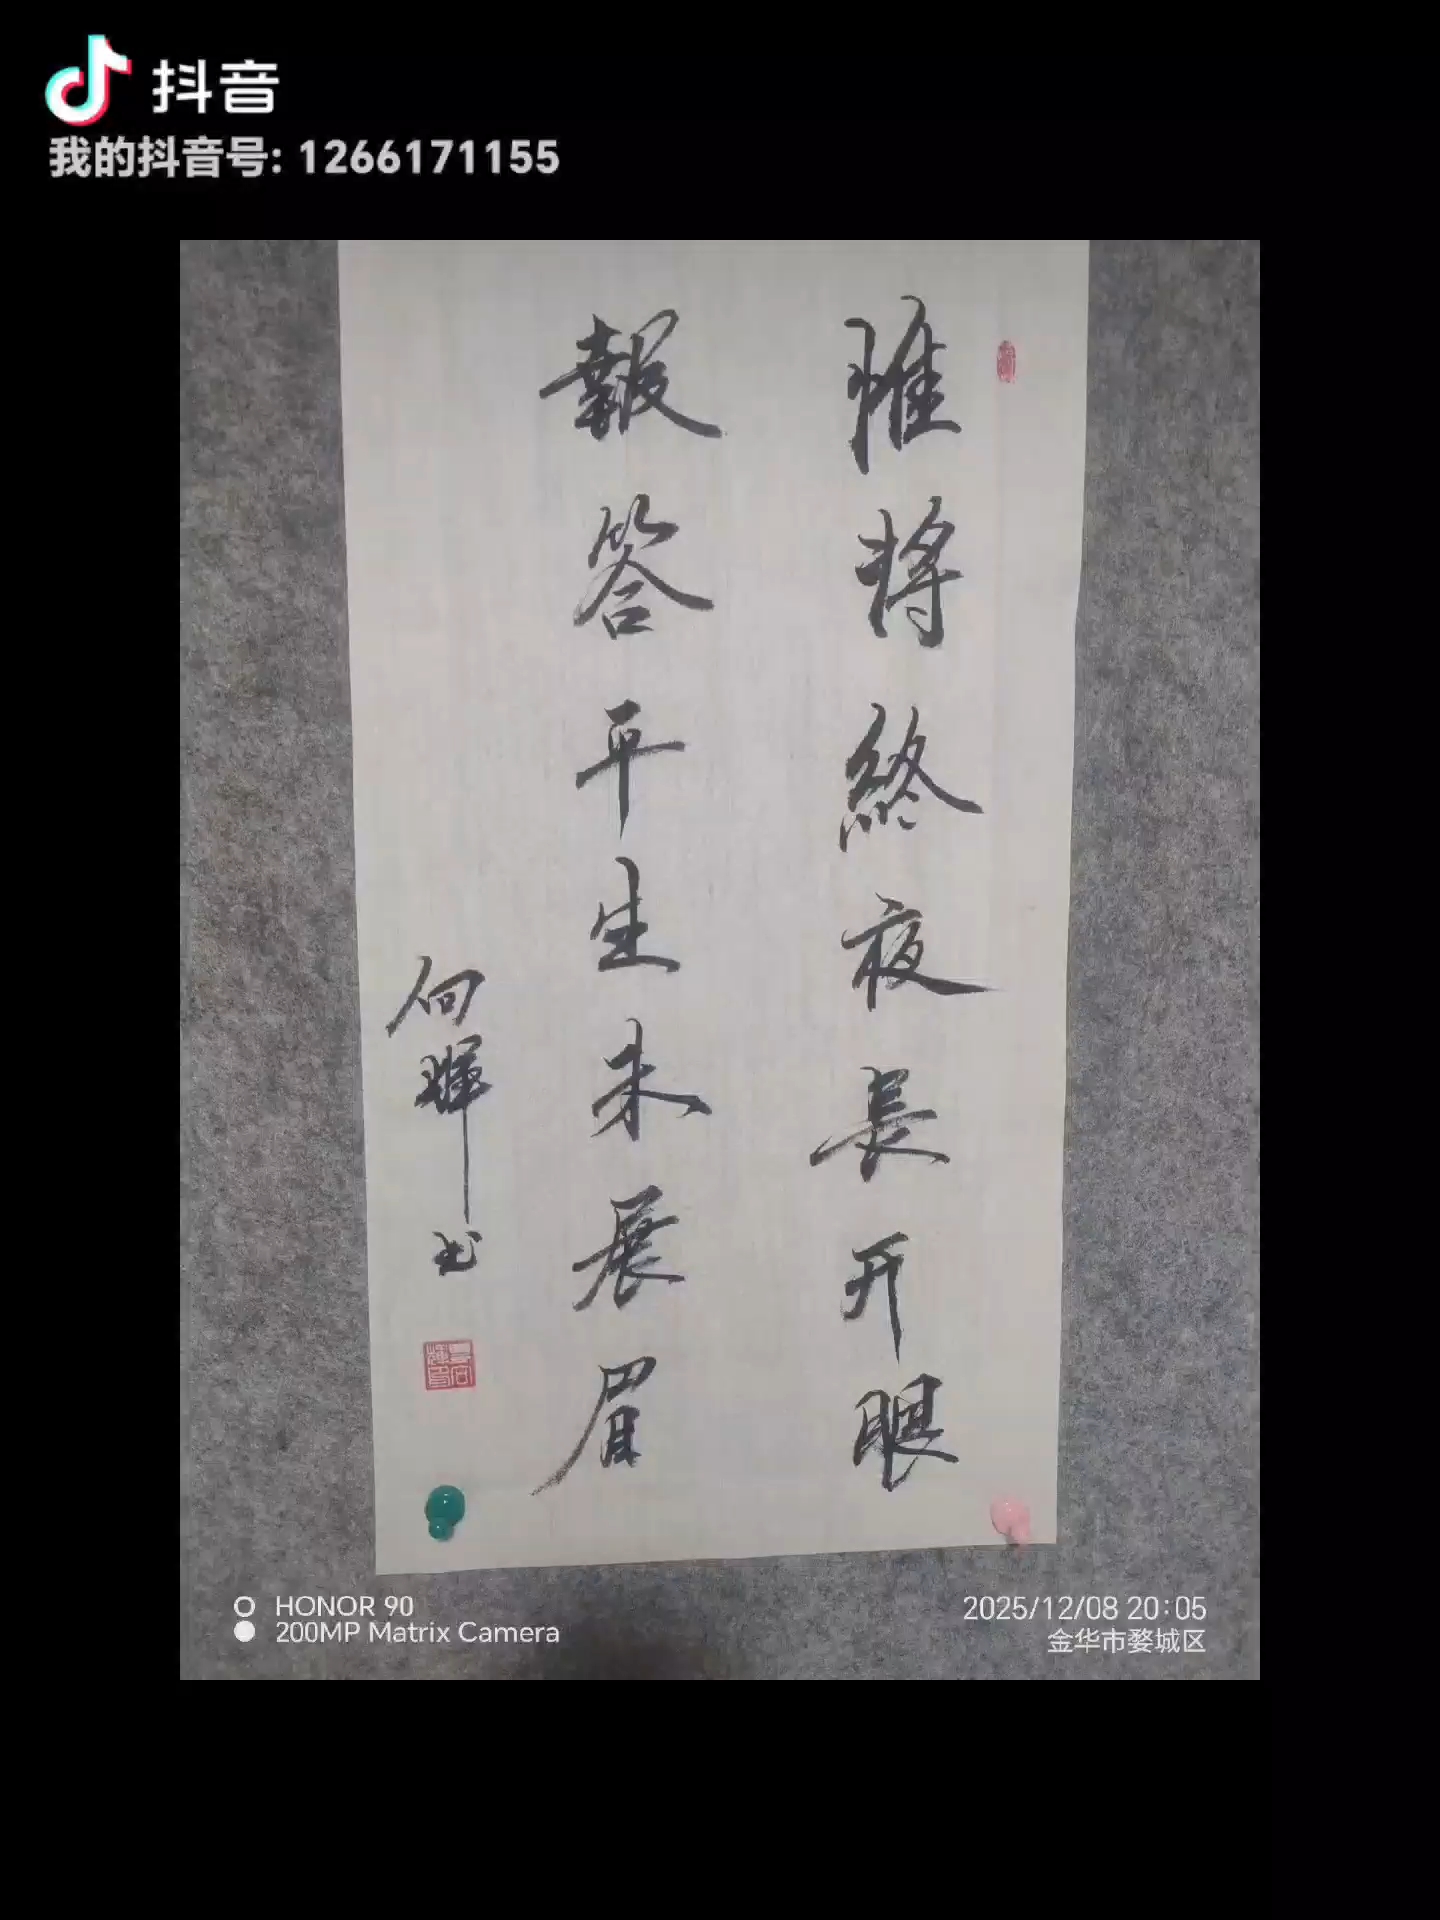 抖音
我的抖音号: 1266171155
惟将終夜長开眼
報答平生未展眉
向輝书
HONOR 90
200MP Matrix Camera
2025/12/08 20:05
金华市婺城区